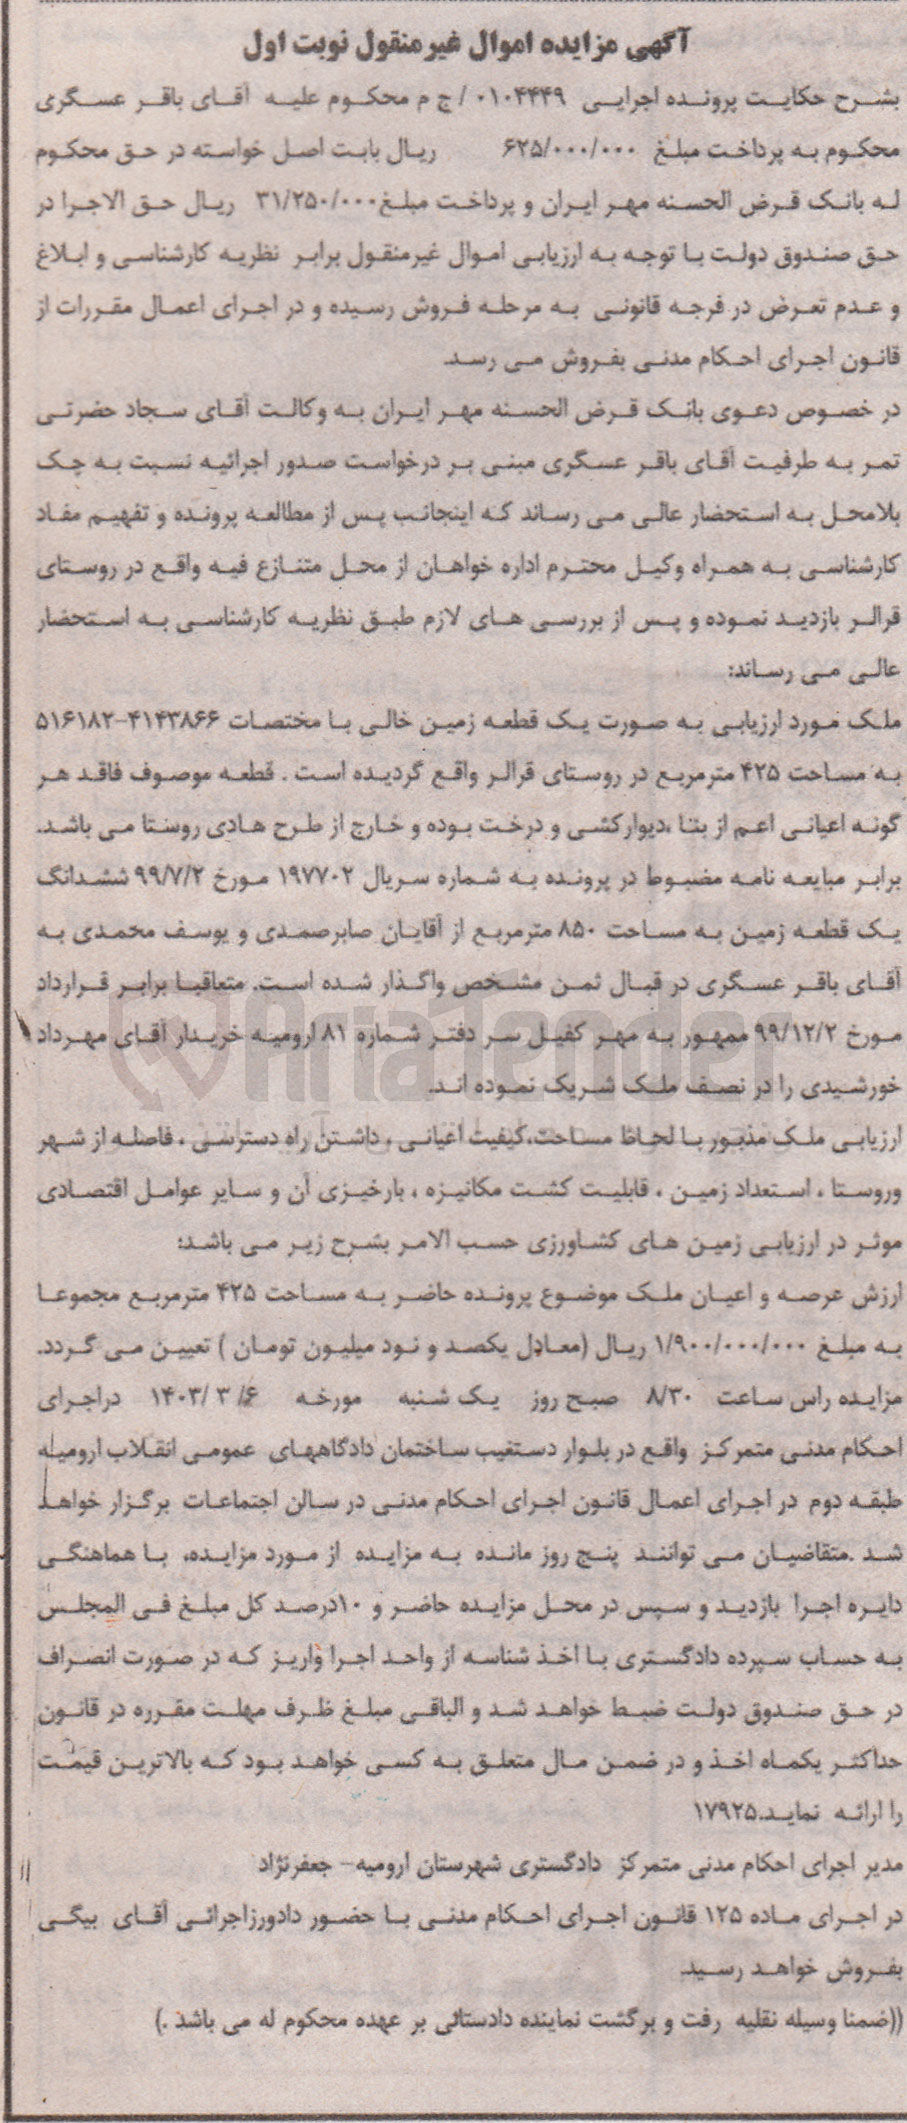 آگهی مزایده اموال غیرمنقول نوبت اول
بشرح حکایت پرونده اجرایی ۰۱۰۴۴۴۹ / ج م محکوم علیه آقای باقر عسگری
محکوم به پرداخت مبلغ ۶۲۵/۰۰۰/۰۰۰ ریال بابت اصل خواسته در حق محکوم
له بانک قرض الحسنه مهر ایران و پرداخت مبلغ۳۱/۲۵۰/۰۰۰ ریال حق الاجرا در
حق صندوق دولت با توجه به ارزیابی اموال غیرمنقول برابر نظریه کارشناسی و ابلاغ
و عدم تعرض در فرجه قانونی به مرحله فروش رسیده و در اجرای اعمال مقررات از
قانون اجرای احکام مدنی بفروش می رسد.
در خصوص دعوی بانک قرض الحسنه مهر ایران به وکالت آقای سجاد حضرتی
تمر به طرفیت آقای باقر عسگری مبنی بر درخواست صدور اجرائیه نسبت به چک
بلامحل به استحضار عالی می رساند که اینجانب پس از مطالعه پرونده و تفهیم مفاد
کارشناسی به همراه وکیل محترم اداره خواهان از محل متنازع فیه واقع در روستای
قرالر بازدید نموده و پس از بررسی های لازم طبق نظریه کارشناسی به استحضار
عالی می رساند:
ملک مورد ارزیابی به صورت یک قطعه زمین خالی با مختصات ۴۱۴۳۸۶۶-۵۱۶۱۸۲
به مساحت ۴۲۵ مترمربع در روستای قرالر واقع گردیده است . قطعه موصوف فاقد هر
گونه اعیانی اعم از بنا ،دیوارکشی و درخت بوده و خارج از طرح هادی روستا می باشد.
برابر مبایعه نامه مضبوط در پرونده به شماره سریال ۱۹۷۷۰۲ مورخ ۹۹/۷/۲ ششدانگ
یک قطعه زمین به مساحت ۸۵۰ مترمربع از آقایان صابرصمدی و یوسف محمدی به
آقای باقر عسگری در قبال ثمن مشخص واگذار شده است. متعاقبا برابر قرارداد
مورخ ۹۹/۱۲/۲ ممهور به مهر کفیل سر دفتر شماره ۸۱ ارومیه خریدار آقای مهرداد
خورشیدی را در نصف ملک شریک نموده اند.
AriaTender
ارزیابی ملک مذبور با لحاظ مساحت،کیفیت اعیانی ، داشتن راه دسترسی ، فاصله از شهر
وروستا ، استعداد زمین ، قابلیت کشت مکانیزه ، بارخیزی آن و سایر عوامل اقتصادی
موثر در ارزیابی زمین های کشاورزی حسب الامر بشرح زیر می باشد:
ارزش عرصه و اعیان ملک موضوع پرونده حاضر به مساحت ۴۲۵ مترمربع مجموعا
به مبلغ ۱/۹۰۰/۰۰۰/۰۰۰ ریال (معادل یکصد و نود میلیون تومان ) تعیین می گردد.
مزایده راس ساعت ۸/۳۰ صبح روز یک شنبه مورخه ۶/ ۳ /۱۴۰۳ دراجرای
احکام مدنی متمرکز واقع در بلوار دستغیب ساختمان دادگاههای عمومی انقلاب ارومیه
طبقه دوم در اجرای اعمال قانون اجرای احکام مدنی در سالن اجتماعات برگزار خواهد
شد .متقاضیان می توانند پنج روز مانده به مزایده از مورد مزایده، با هماهنگی
دایره اجرا بازدید و سپس در محل مزایده حاضر و ۱۰درصد کل مبلغ فی المجلس
به حساب سپرده دادگستری با اخذ شناسه از واحد اجرا واریز که در صورت انصراف
در حق صندوق دولت ضبط خواهد شد و الباقی مبلغ ظرف مهلت مقرره در قانون
حداکثر یکماه اخذ و در ضمن مال متعلق به کسی خواهد بود که بالاترین قیمت
را ارائه نماید.۱۷۹۲۵
مدیر اجرای احکام مدنی متمرکز دادگستری شهرستان ارومیه- جعفرنژاد
در اجرای ماده ۱۲۵ قانون اجرای احکام مدنی با حضور دادورزاجرائی آقای بیگی
بفروش خواهد رسید.
((ضمنا وسیله نقلیه رفت و برگشت نماینده دادستانی بر عهده محکوم له می باشد .)